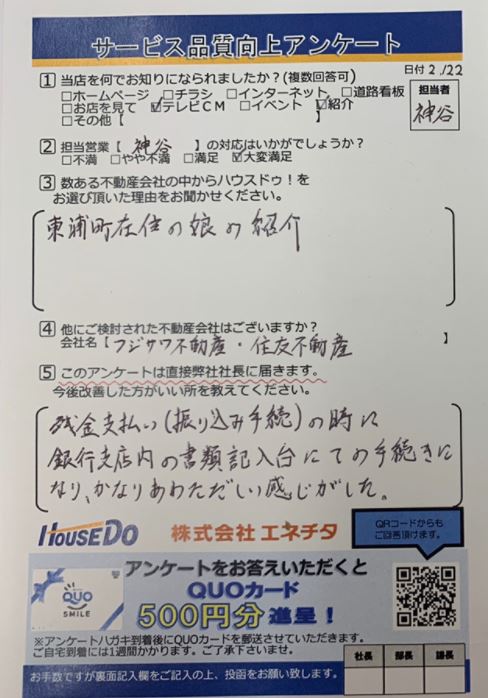 サービス品質向上アンケート
日付 2./22
1 当店を何でお知りになられましたか?(複数回答可)
□ホームページ □チラシ □インターネット □道路看板
□お店を見て ☑テレビCM □イベント ☑紹介
□その他【 】
担当者
神谷
2 担当営業【 神谷 】の対応はいかがでしょうか?
□不満 □やや不満 □満足 ☑大変満足
3 数ある不動産会社の中からハウスドゥ!を
お選び頂いた理由をお聞かせください。
東浦町在住の娘の紹介
4 他にご検討された不動産会社はございますか?
会社名【 フジサワ不動産・住友不動産 】
5 このアンケートは直接弊社社長に届きます。
今後改善した方がいい所を教えてください。
残金支払い(振り込み手続)の時に
銀行支店内の書類記入台にての手続きに
なり、かなりあわただしい感じがした。
HOUSEDO 株式会社 エネチタ
QRコードからも
ご回答頂けます。
アンケートをお答えいただくと
QUOカード
500円分 進呈!
QUO
SMILE
※アンケートハガキ到着後にQUOカードを郵送させていただきます。
ご自宅到着には1週間かかります。ご了承下さいませ。
お手数ですが裏面記入欄をご記入の上、投函をお願い致します。
社長 部長 課長